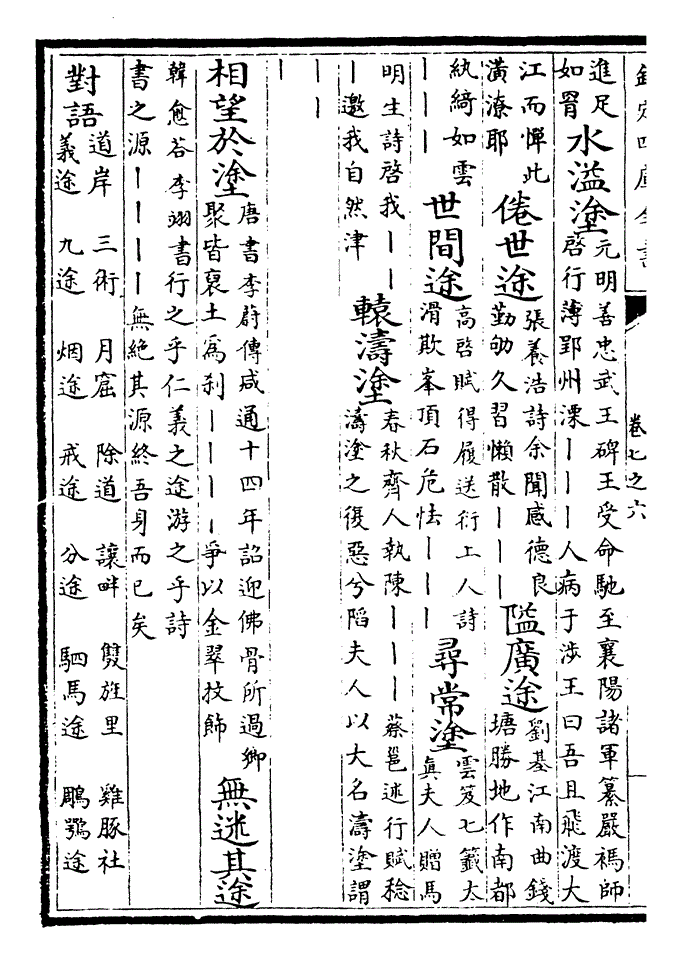 欽定四庫全書　卷七之六
進足
如胥
水溢塗
元明善忠武王碑王受命馳至襄陽諸軍纂嚴禡師
啓行薄郢州溧｜｜｜人病于涉王曰吾且飛渡大
江而憚此
潢潦耶
倦世途
張養浩詩余聞感德良
勤劬久習懶散｜｜｜
隘廣途
劉基江南曲錢
塘勝地作南都
紈綺如雲
｜｜｜
世間途
高啓賦得履送行工人詩
滑欺峯頂石危怯｜｜｜
尋常塗
雲笈七籤太
真夫人贈馬
明生詩啓我｜｜
｜邀我自然津
轅濤塗
春秋齊人執陳｜｜｜蔡邕述行賦稔
濤塗之復惡兮陷夫人以大名濤塗謂
｜
｜｜
相望於塗
唐書李蔚傳咸通十四年詔迎佛骨所過鄉
聚皆裒土為刹｜｜｜｜爭以金翠抆飾
無迷其途
韓愈荅李翊書行之乎仁義之途游之乎詩
書之源｜｜｜｜無絶其源終吾身而已矣
對語
道岸　三術　月窟　除道　讓畔　雙旌里　雞豚社
義途　九途　烟途　戒途　分途　駟馬途　鵰鶚途